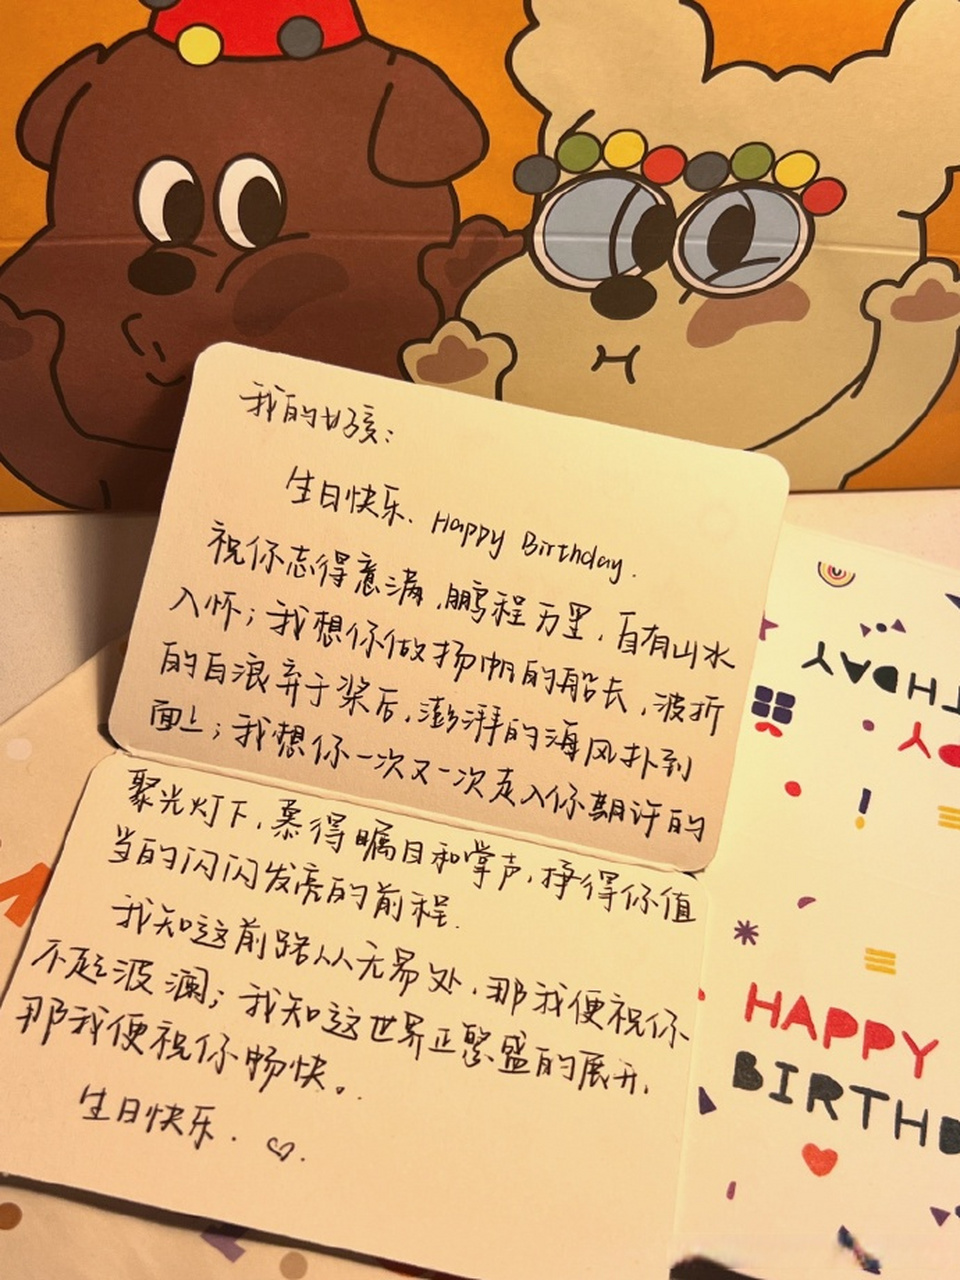 我的好孩：
生日快乐. Happy Birthday.
祝你志得意满，鹏程万里，自有山水
入怀；我想你做扬帆的船长，波折
的白浪弃于桨后，澎湃的海风扑到
面上；我想你一次又一次走入你期许的
聚光灯下，慕得瞩目和掌声，挣得你值
当的闪闪发亮的前程.
我知这前路从无易处，那我便祝你
不起波澜；我知这世界正繁盛的展开，
那我便祝你畅快。
生日快乐.
THDAY
HAPPY
BIRTHD